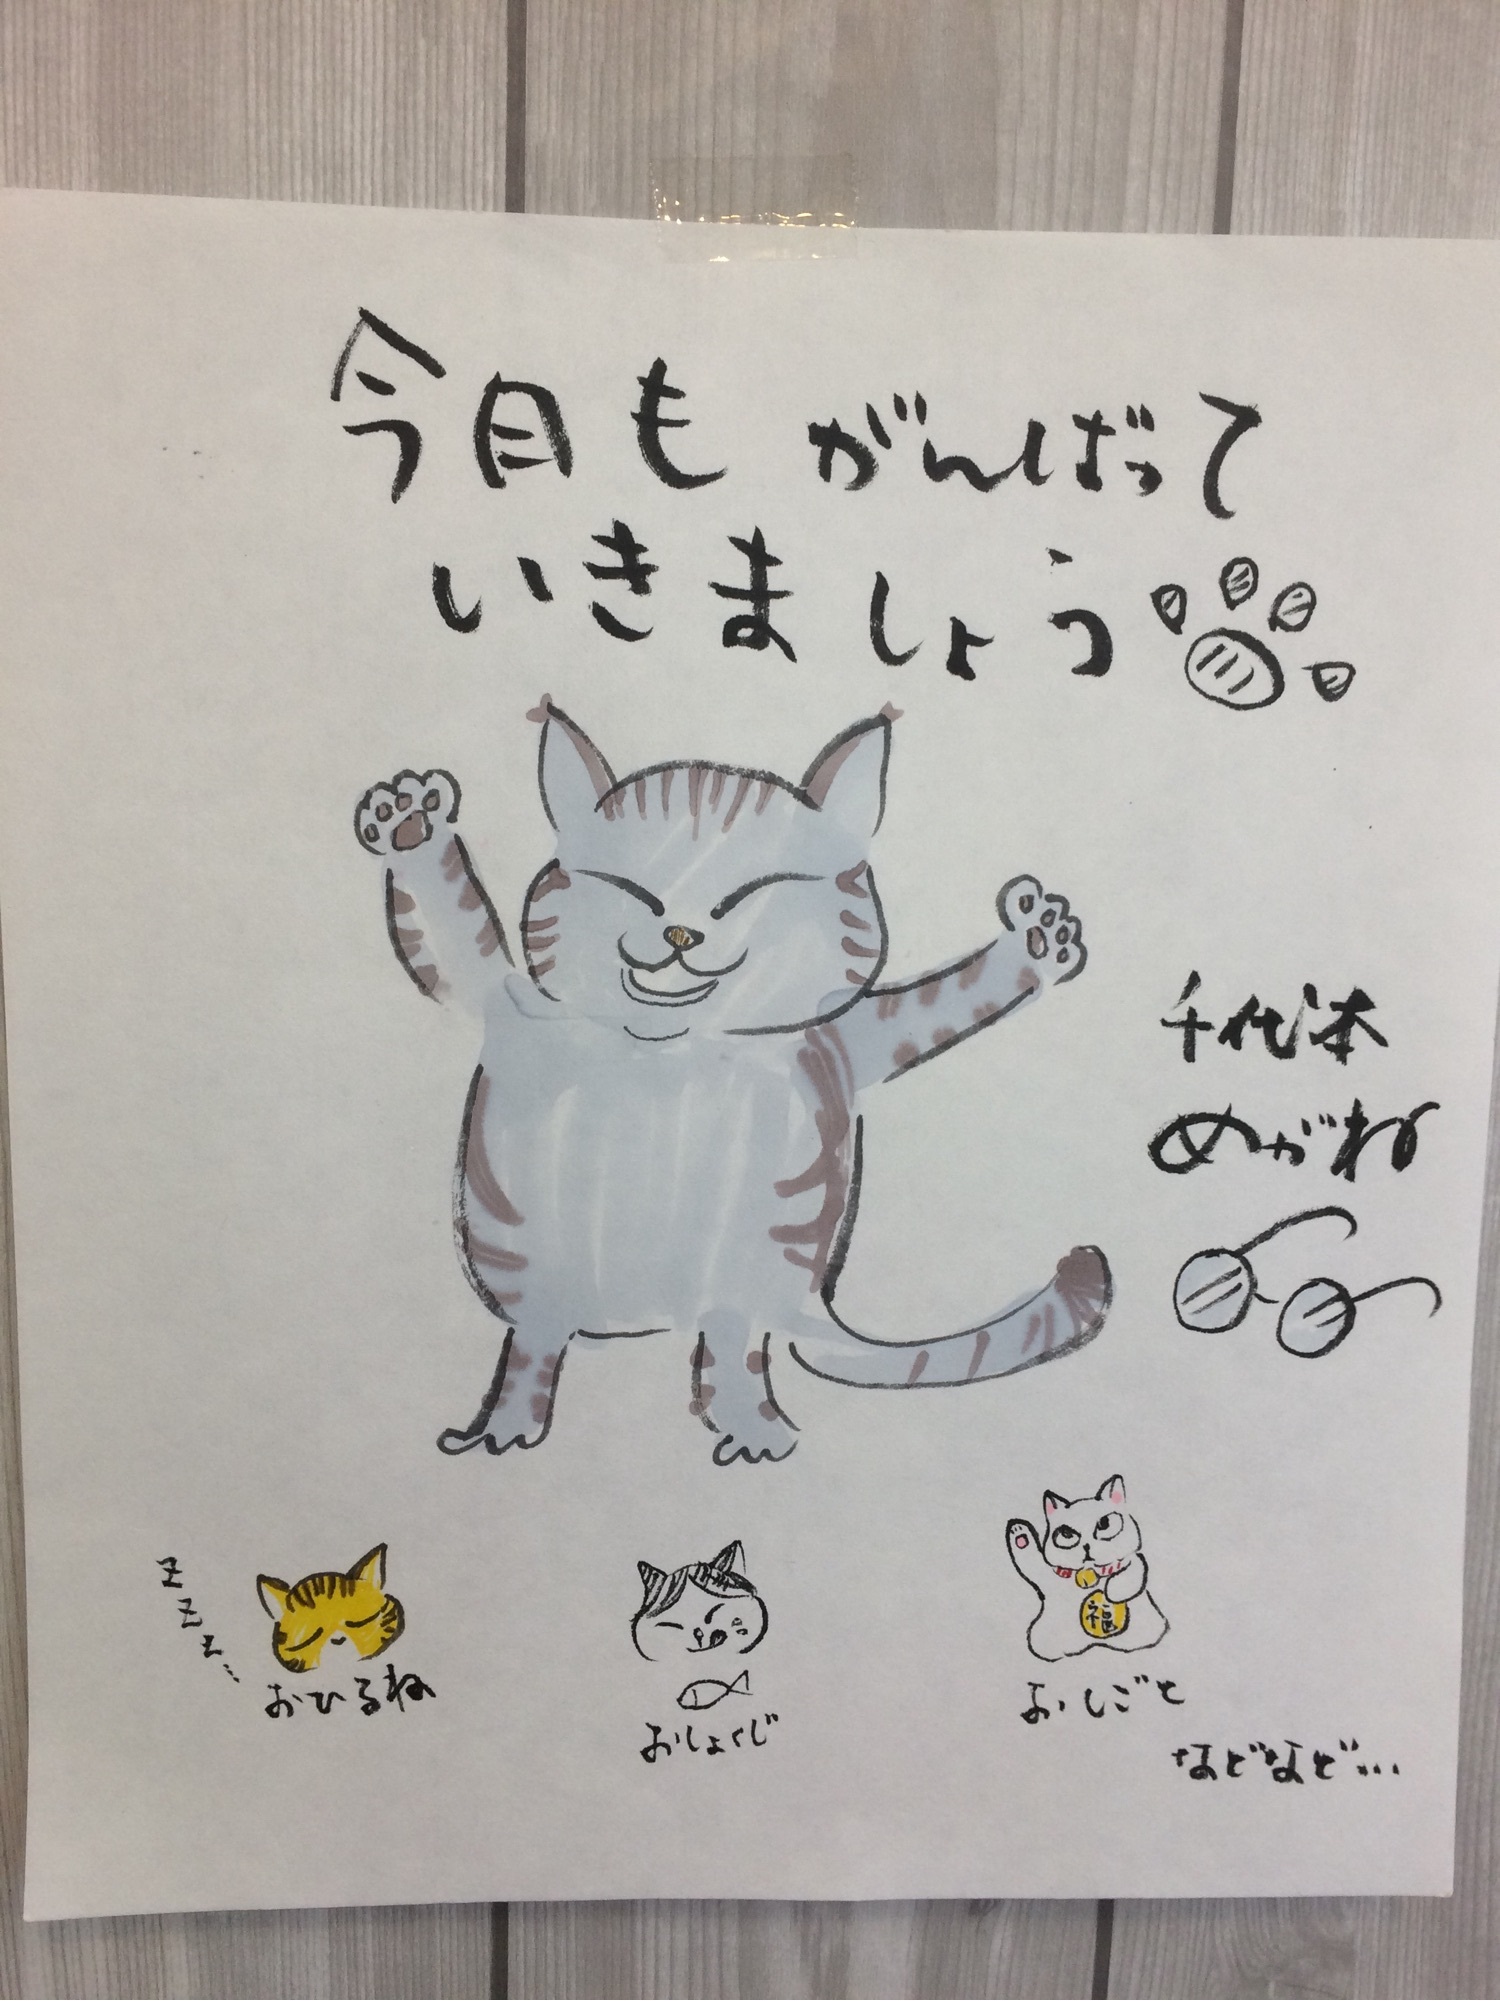 今月もがんばって
いきましょう
千代本
めがね
z
z
z...
おひるね
おしょくじ
福
おしごと
などなど...